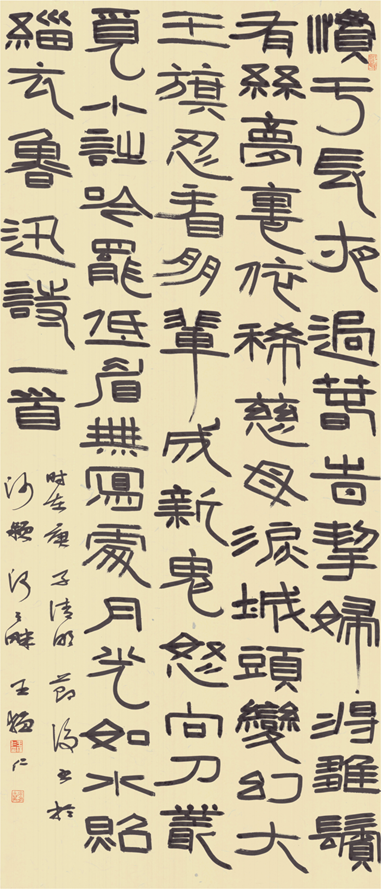 慣于長夜過春旹挈婦將雛鬢
有絲夢裏依稀慈母淚城頭變幻大
王旗忍看朋輩成新鬼怒向刀叢
覓小詩吟罷低眉無寫處月光如水照
緇衣魯迅詩一首
时在庚子清明節後書於
沙潁河之畔王猛仁